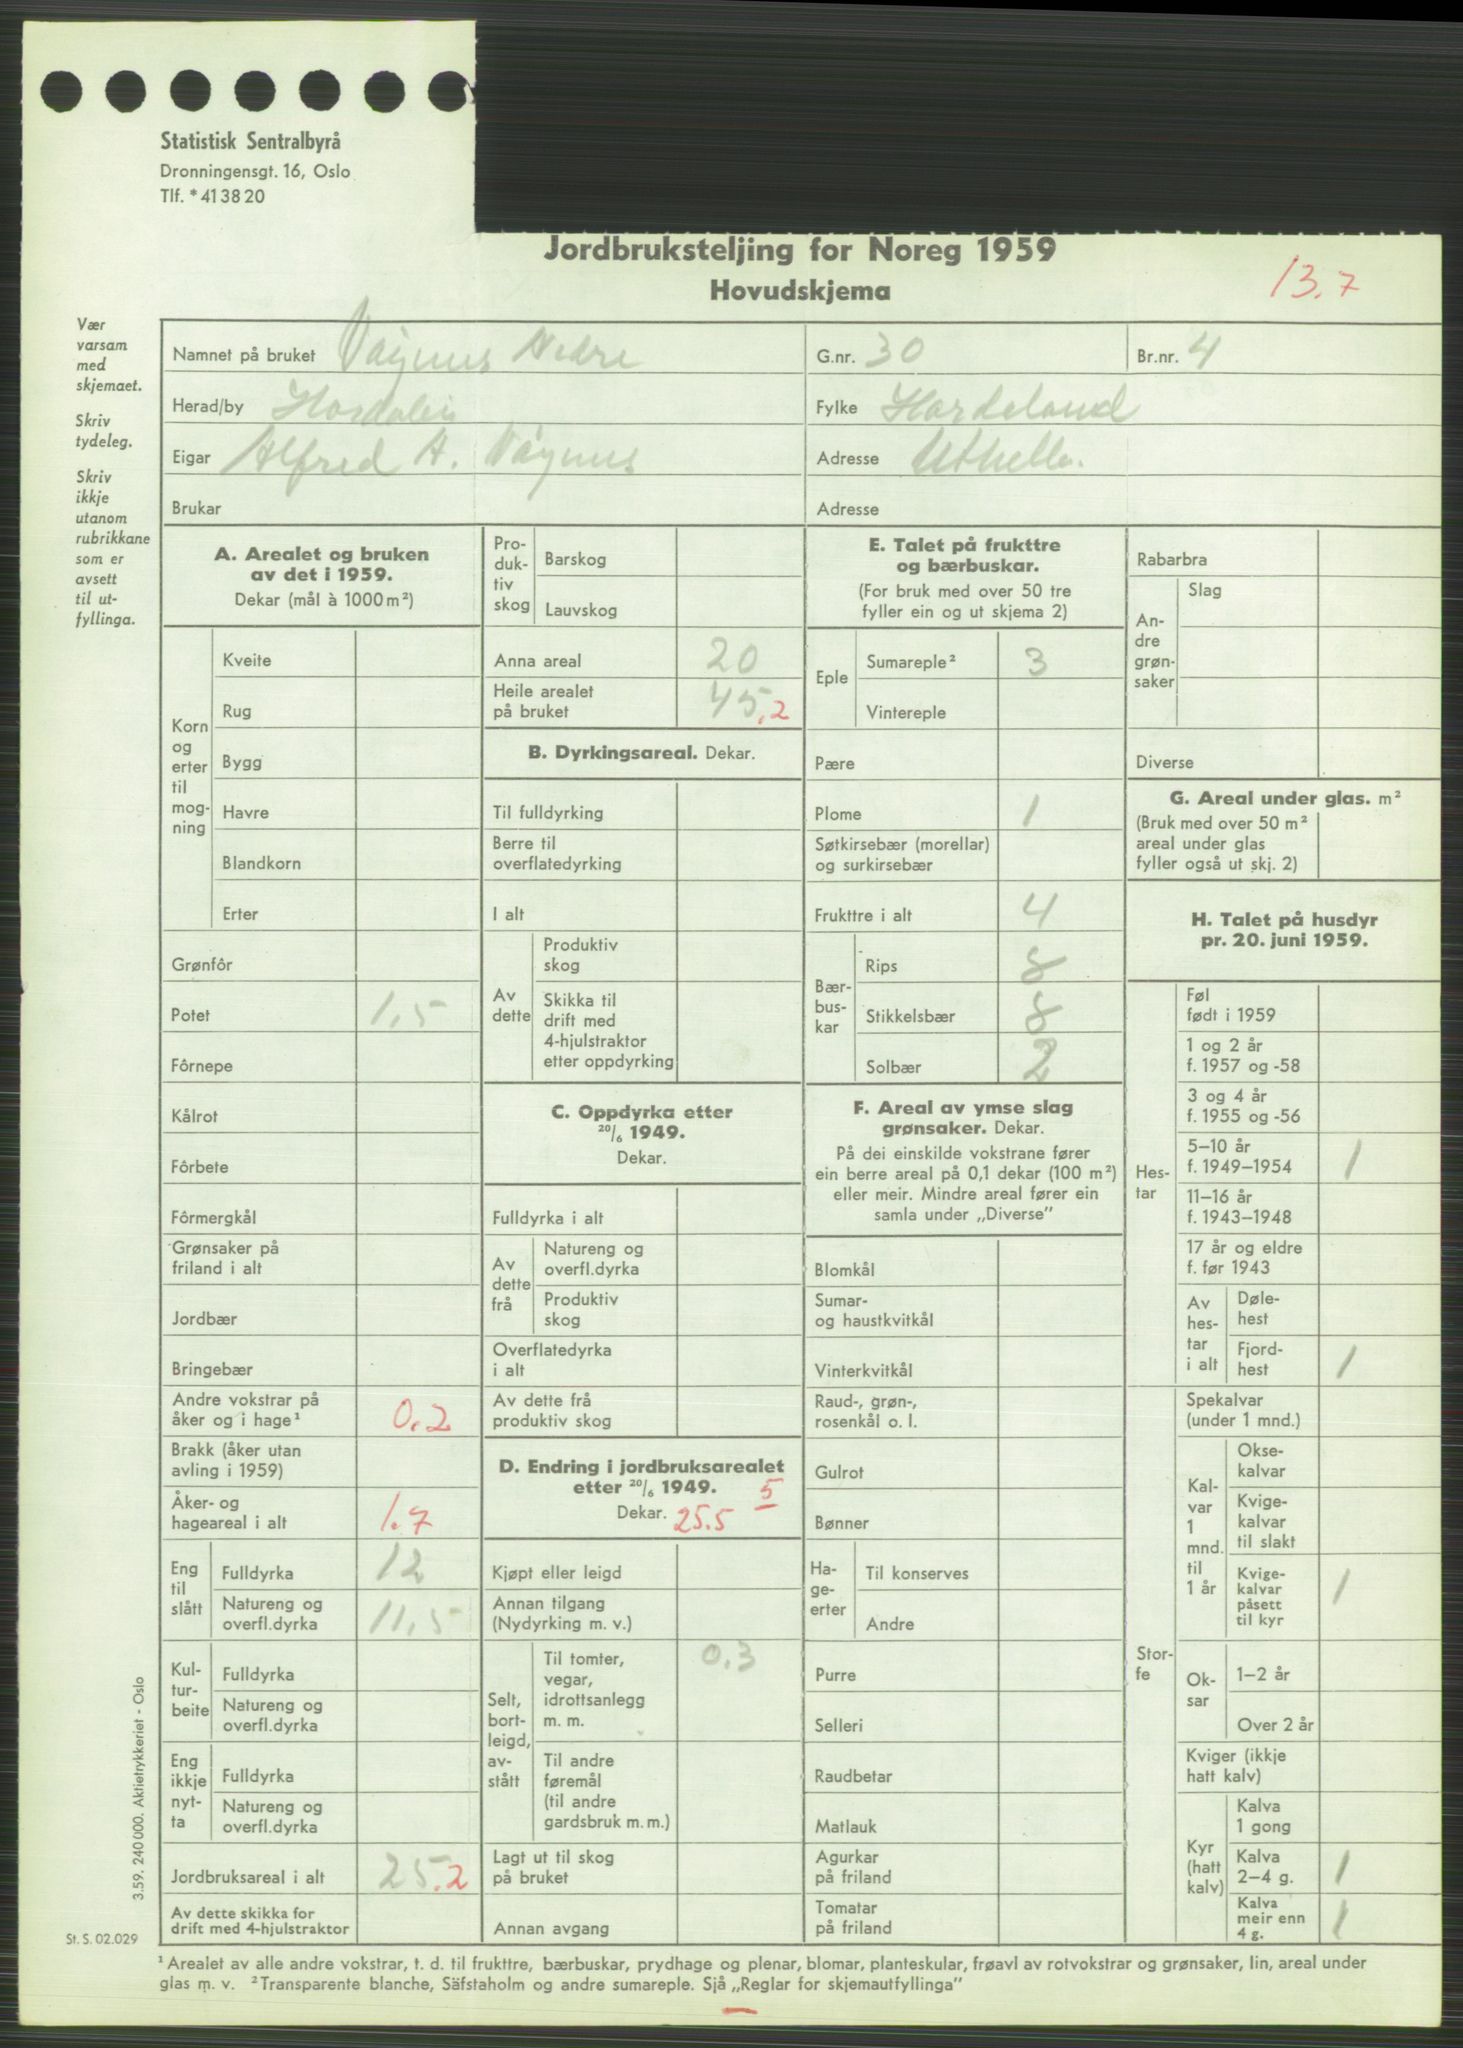 Statistisk Sentralbyrå
Dronningensgt. 16, Oslo
Tlf. * 41 38 20
Jordbruksteljing for Noreg 1959
Hovudskjema
13.7
Vær
varsam
med
skjemaet.
Skriv
tydeleg.
Skriv
ikkje
utanom
rubrikkane
som er
avsett
til ut-
fyllinga.
Namnet på bruket Vågnes Nedre G.nr. 30 Br.nr. 4
Herad/by Hosdalen Fylke Hordaland
Eigar Alfred A. Vågnes Adresse
Brukar Adresse
A. Arealet og bruken
av det i 1959.
Dekar (mål à 1000 m²)
Korn
og
erter
til
mog-
ning
Kveite
Rug
Bygg
Havre
Blandkorn
Erter
Grønfôr
Potet 1,5
Fôrnepe
Kålrot
Fôrbete
Fôrmergkål
Grønsaker på
friland i alt
Jordbær
Bringebær
Andre vokstrar på
åker og i hage¹ 0.2
Brakk (åker utan
avling i 1959)
Åker- og
hageareal i alt 1.7
Eng
til
slått
Fulldyrka 12
Natureng og
overfl.dyrka 11,5
Kul-
tur-
beite
Fulldyrka
Natureng og
overfl.dyrka
Eng
ikkje
nyt-
ta
Fulldyrka
Natureng og
overfl.dyrka
Jordbruksareal i alt 25.2
Av dette skikka for
drift med 4-hjulstraktor
Pro-
duk-
tiv
skog
Barskog
Lauvskog
Anna areal 20
Heile arealet
på bruket 45.2
B. Dyrkingsareal. Dekar.
Til fulldyrking
Berre til
overflatedyrking
I alt
Av
dette
Produktiv
skog
Skikka til
drift med
4-hjulstraktor
etter oppdyrking
C. Oppdyrka etter
20/6 1949.
Dekar.
Fulldyrka i alt
Av
dette
frå
Natureng og
overfl.dyrka
Produktiv
skog
Overflatedyrka
i alt
Av dette frå
produktiv skog
D. Endring i jordbruksarealet
etter 20/6 1949. 5
Dekar. 25.5
Kjøpt eller leigd
Annan tilgang
(Nydyrking m. v.)
Selt,
bort-
leigd,
av-
stått
Til tomter, 0.3
vegar,
idrottsanlegg
m. m.
Til andre
føremål
(til andre
gardsbruk m. m.)
Lagt ut til skog
på bruket
Annan avgang
E. Talet på frukttre
og bærbuskar.
(For bruk med over 50 tre
fyller ein og ut skjema 2)
Eple
Sumareple² 3
Vintereple
Pære
Plome 1
Søtkirsebær (morellar)
og surkirsebær
Frukttre i alt 4
Bær-
bus-
kar
Rips 8
Stikkelsbær 8
Solbær 2
F. Areal av ymse slag
grønsaker. Dekar.
På dei einskilde vokstrane fører
ein berre areal på 0,1 dekar (100 m²)
eller meir. Mindre areal fører ein
samla under „Diverse”
Blomkål
Sumar-
og haustkvitkål
Vinterkvitkål
Raud-, grøn-,
rosenkål o. l.
Gulrot
Bønner
Ha-
ge-
erter
Til konserves
Andre
Purre
Selleri
Raudbetar
Matlauk
Agurkar
på friland
Tomatar
på friland
Rabarbra
An-
dre
grøn-
saker
Slag
Diverse
G. Areal under glas. m²
(Bruk med over 50 m²
areal under glas
fyller også ut skj. 2)
H. Talet på husdyr
pr. 20. juni 1959.
Hes-
tar
Føl
født i 1959
1 og 2 år
f. 1957 og -58
3 og 4 år
f. 1955 og -56
5–10 år
f. 1949–1954 1
11–16 år
f. 1943–1948
17 år og eldre
f. før 1943
Av
hes-
tar
i alt
Døle-
hest
Fjord-
hest 1
Stor-
fe
Spekalvar
(under 1 mnd.)
Kal-
var
1
mnd.
til
1 år
Okse-
kalvar
Kvige-
kalvar
til slakt
Kvige-
kalvar
påsett
til kyr 1
Ok-
sar
1–2 år
Over 2 år
Kviger (ikkje
hatt kalv)
Kyr
(hatt
kalv)
Kalva
1 gong
Kalva
2–4 g. 1
Kalva
meir enn
4 g. 1
3.59. 240 000. Aktietrykkeriet - Oslo
St. S. 02.029
¹ Arealet av alle andre vokstrar, t. d. til frukttre, bærbuskar, prydhage og plenar, blomar, planteskular, frøavl av rotvokstrar og grønsaker, lin, areal under
glas m. v. ² Transparente blanche, Säfstaholm og andre sumareple. Sjå „Reglar for skjemautfyllinga”